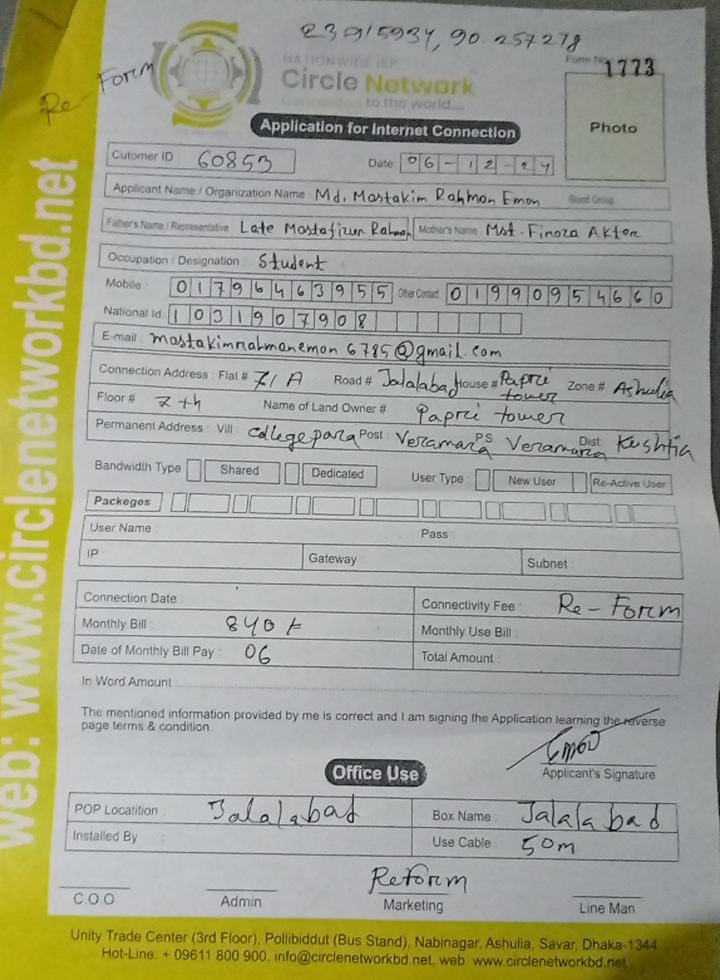 23.915934, 90.257278
Re-Form
NATIONWIDE ISP
Circle Network
Connected to the world....
Form No 1773
Photo
Application for Internet Connection
Cutomer ID 60853 Date 06-12-24
Applicant Name / Organization Name : Md. Mostakim Rahman Emon Blood Group
Father's Name / Representative Late Mostafizur Rahman Mother's Name Mst. Firoza Akter
Occupation / Designation : Student
Mobile : 01796463955 Other Contact 01990954660
National Id : 1031907908
E-mail : mostakimrahmanemon6785@gmail.com
Connection Address : Flat # 7/A Road # Jalalabad House # Papri tower Zone # Ashulia
Floor # 7th Name of Land Owner # Papri tower
Permanent Address : Vill : collegepara Post : Veramara PS Veramara Dist: Kushtia
Bandwidth Type Shared Dedicated User Type : New User Re-Active User
Packeges
User Name : Pass :
IP Gateway Subnet
Connection Date : Connectivity Fee : Re-Form
Monthly Bill : 840 Monthly Use Bill :
Date of Monthly Bill Pay : 06 Total Amount :
In Word Amount :
The mentioned information provided by me is correct and I am signing the Application learning the reverse
page terms & condition.
Emon
Applicant's Signature
Office Use
POP Locatition : Jalalabad Box Name : Jalalabad
Installed By : Use Cable : 50m
Reform
C.O.O Admin Marketing Line Man
Unity Trade Center (3rd Floor), Pollibiddut (Bus Stand), Nabinagar, Ashulia, Savar, Dhaka-1344
Hot-Line: + 09611 800 900, info@circlenetworkbd.net, web: www.circlenetworkbd.net
web: www.circlenetworkbd.net